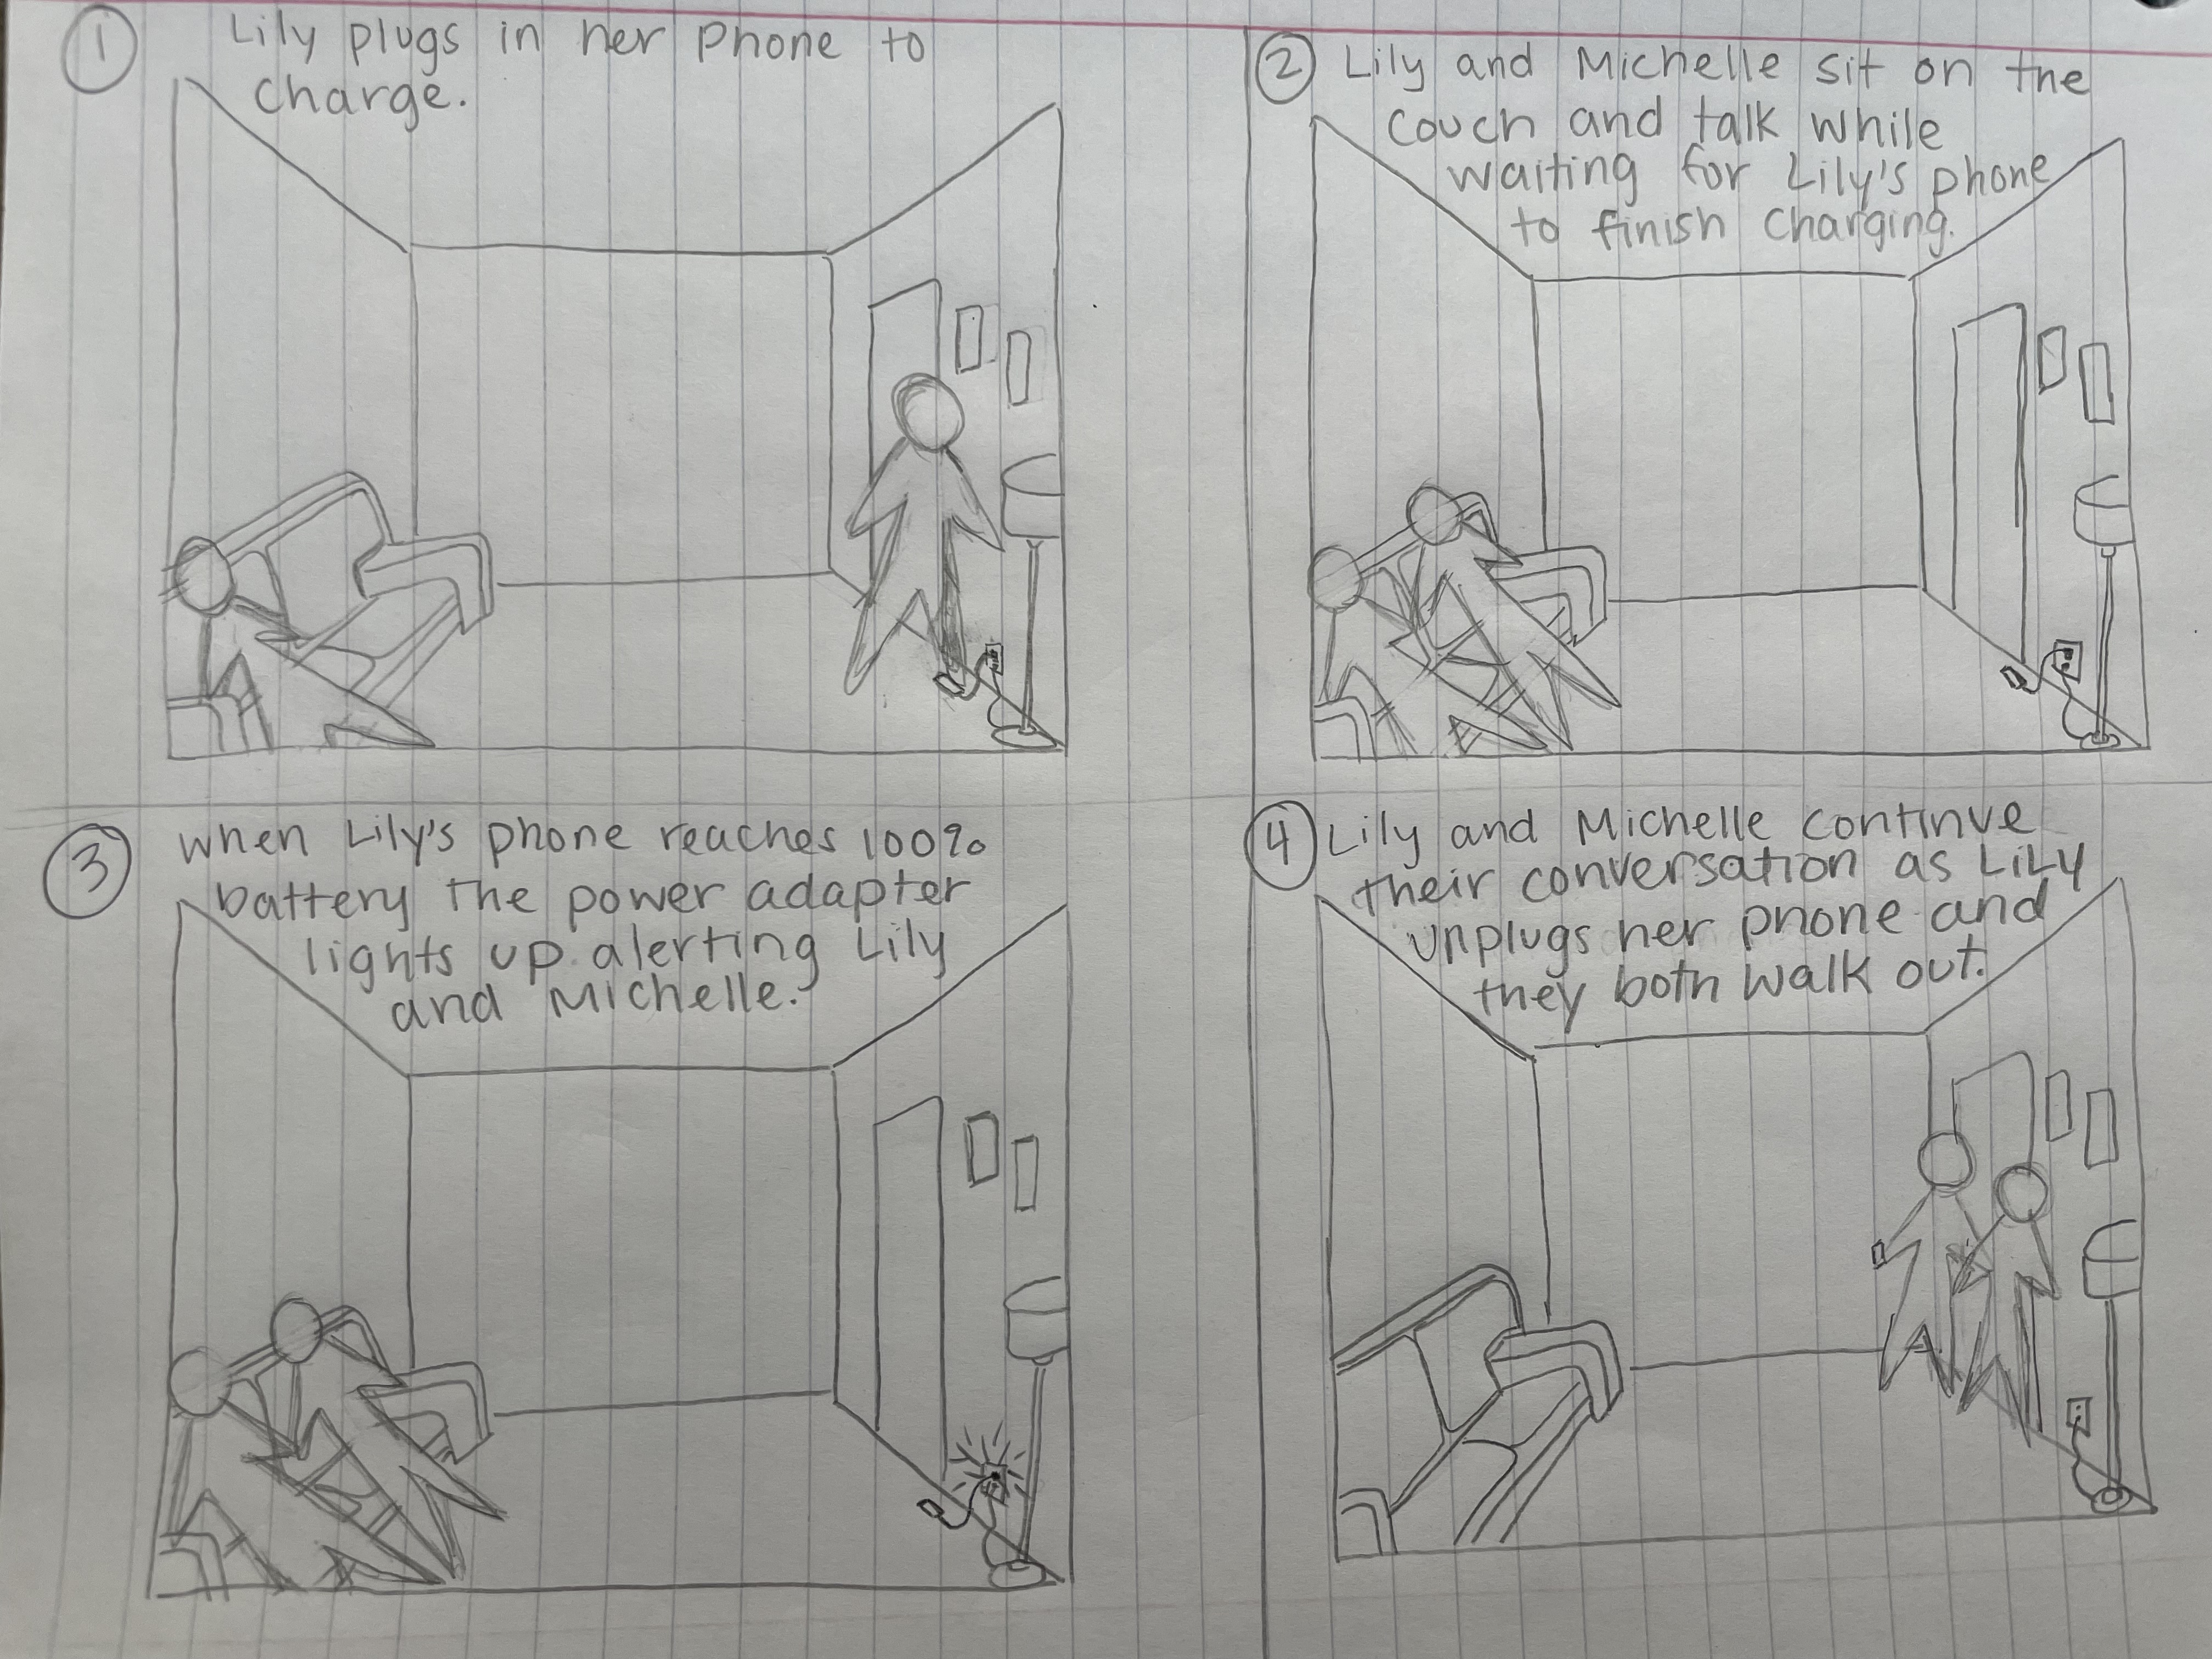 1
Lily plugs in her phone to
charge.
2
Lily and Michelle sit on the
couch and talk while
waiting for Lily's phone
to finish charging.
3
when Lily's phone reaches 100%
battery the power adapter
lights up alerting Lily
and Michelle.
4
Lily and Michelle continue
their conversation as Lily
unplugs her phone and
they both walk out.